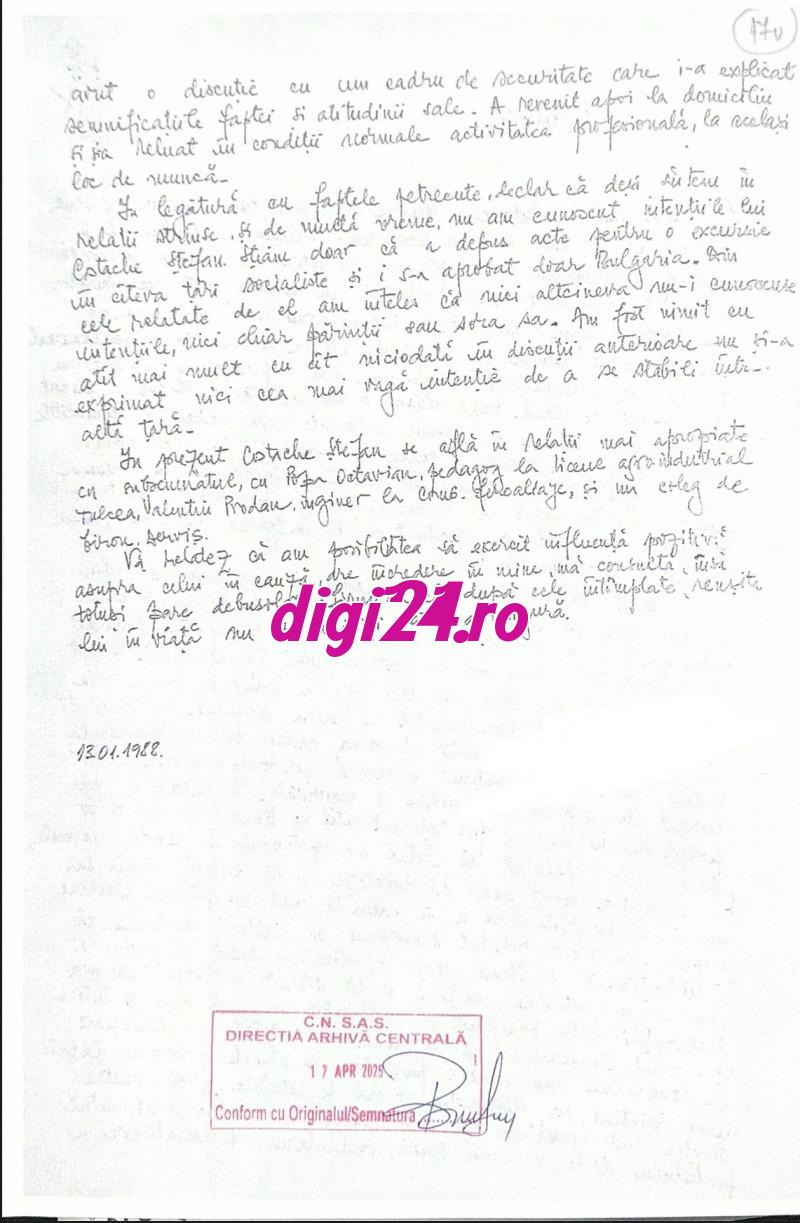 17v
avut o discuție cu un cadru de securitate care i-a explicat
semnificațiile faptei si atitudinii sale. A revenit apoi la domiciliu
și și-a reluat în condiții normale activitatea profesională, la același
loc de muncă.
In legătură cu faptele petrecute, declar că deși sîntem în
relatii strînse și de multă vreme, nu am cunoscut intențiile lui
Costache Ștefan. Știam doar că a depus acte pentru o excursie
în cîteva țări socialiste și i s-a aprobat doar Bulgaria. Din
cele relatate de el am înteles că nici altcineva nu-i cunoscuse
intențiile, nici chiar părinții sau sora sa. Am fost uimit cu
atît mai mult cu cît niciodată în discuții anterioare nu și-a
exprimat nici cea mai vagă intenție de a se stabili într-
altă țară.
In prezent Costache Ștefan se află în relații mai apropiate
cu subsemnatul, cu Popa Octavian, pedagog la liceul agroindustrial
Tulcea, Valentin Prodan, inginer la și un coleg de
birou, servis.
Vă relatez că am posibilitatea să exercit influență pozitivă
asupra celui în cauză, are încredere în mine, mă consultă, însă
totuși pare după cele întîmplate, reușita
lui în viață nu
digi24.ro
13.01.1988.
C.N. S.A.S.
DIRECTIA ARHIVĂ CENTRALĂ
17 APR 2025
Conform cu Originalul/Semnatura